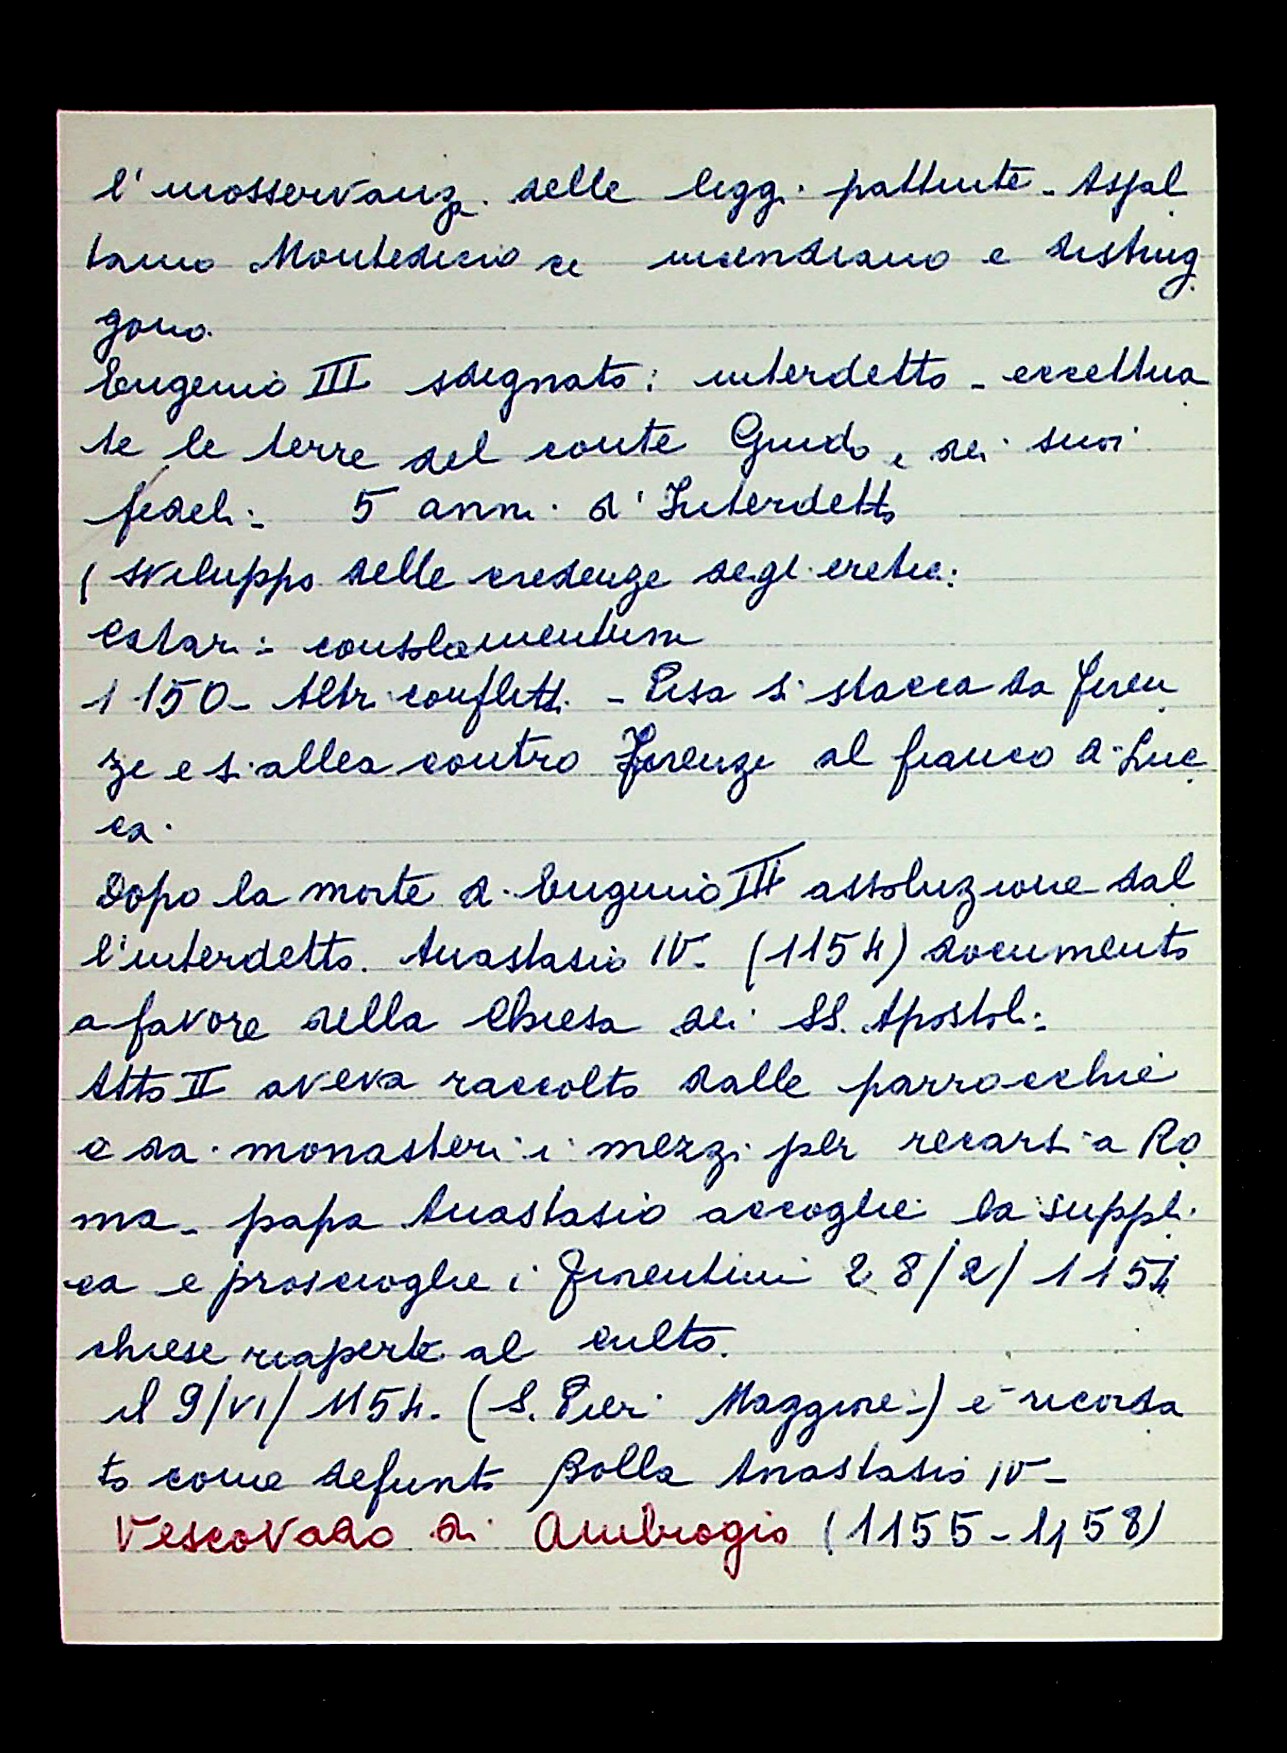 l'inosservanza delle leggi pattuite - Assal
tano Montedicio ce incendiano e distrug
gono.
Eugenio III sdegnato: interdetto - eccettua
te le terre del conte Guido e dei suoi
fedeli - 5 anni d'Interdetto
(sviluppo delle credenze degli eretici
Catari - consolamentum
1150 - Altri conflitti - Pisa si stacca da Firen
ze e si allea contro Firenze al fianco di Luc
ca.
Dopo la morte di Eugenio III assoluzione dal
l'interdetto. Anastasio IV - (1154) documento
a favore della Chiesa dei SS. Apostoli -
Atto II aveva raccolto dalle parrocchie
e dai monasteri i mezzi per recarsi a Ro
ma - papa Anastasio accoglie la suppli
ca e proscioglie i fiorentini 28/2/1154
chiese riaperte al culto.
il 9/VI/1154. (S. Pier Maggiore -) è ricorda
to come defunto Bolla Anastasio IV -
Vescovado di Ambrogio (1155-1158)